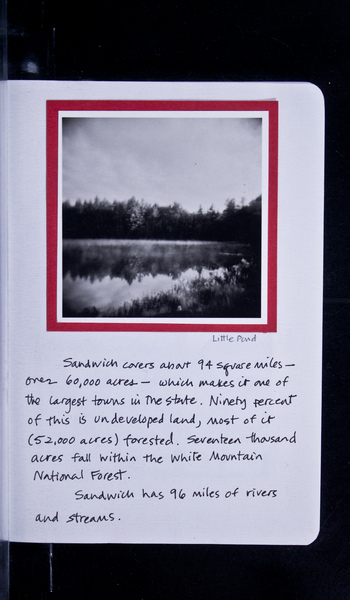 Little Pond
Sandwich covers about 94 square miles—
over 60,000 acres — which makes it one of
the largest towns in the state. Ninety percent
of this is undeveloped land, most of it
(52,000 acres) forested. Seventeen thousand
acres fall within the White Mountain
National Forest.
Sandwich has 96 miles of rivers
and streams.